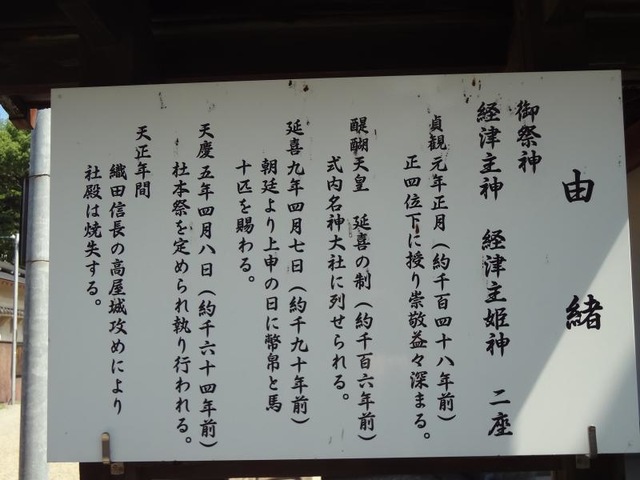 由緒
御祭神
経津主神 経津主姫神 二座
貞観元年正月(約千百四十八年前)
正四位下に授り崇敬益々深まる。
醍醐天皇 延喜の制(約千百六年前)
式内名神大社に列せられる。
延喜九年四月七日(約千九十年前)
朝廷より上申の日に幣帛と馬
十匹を賜わる。
天慶五年四月八日(約千六十四年前)
社本祭を定められ執り行われる。
天正年間
織田信長の高屋城攻めにより
社殿は焼失する。